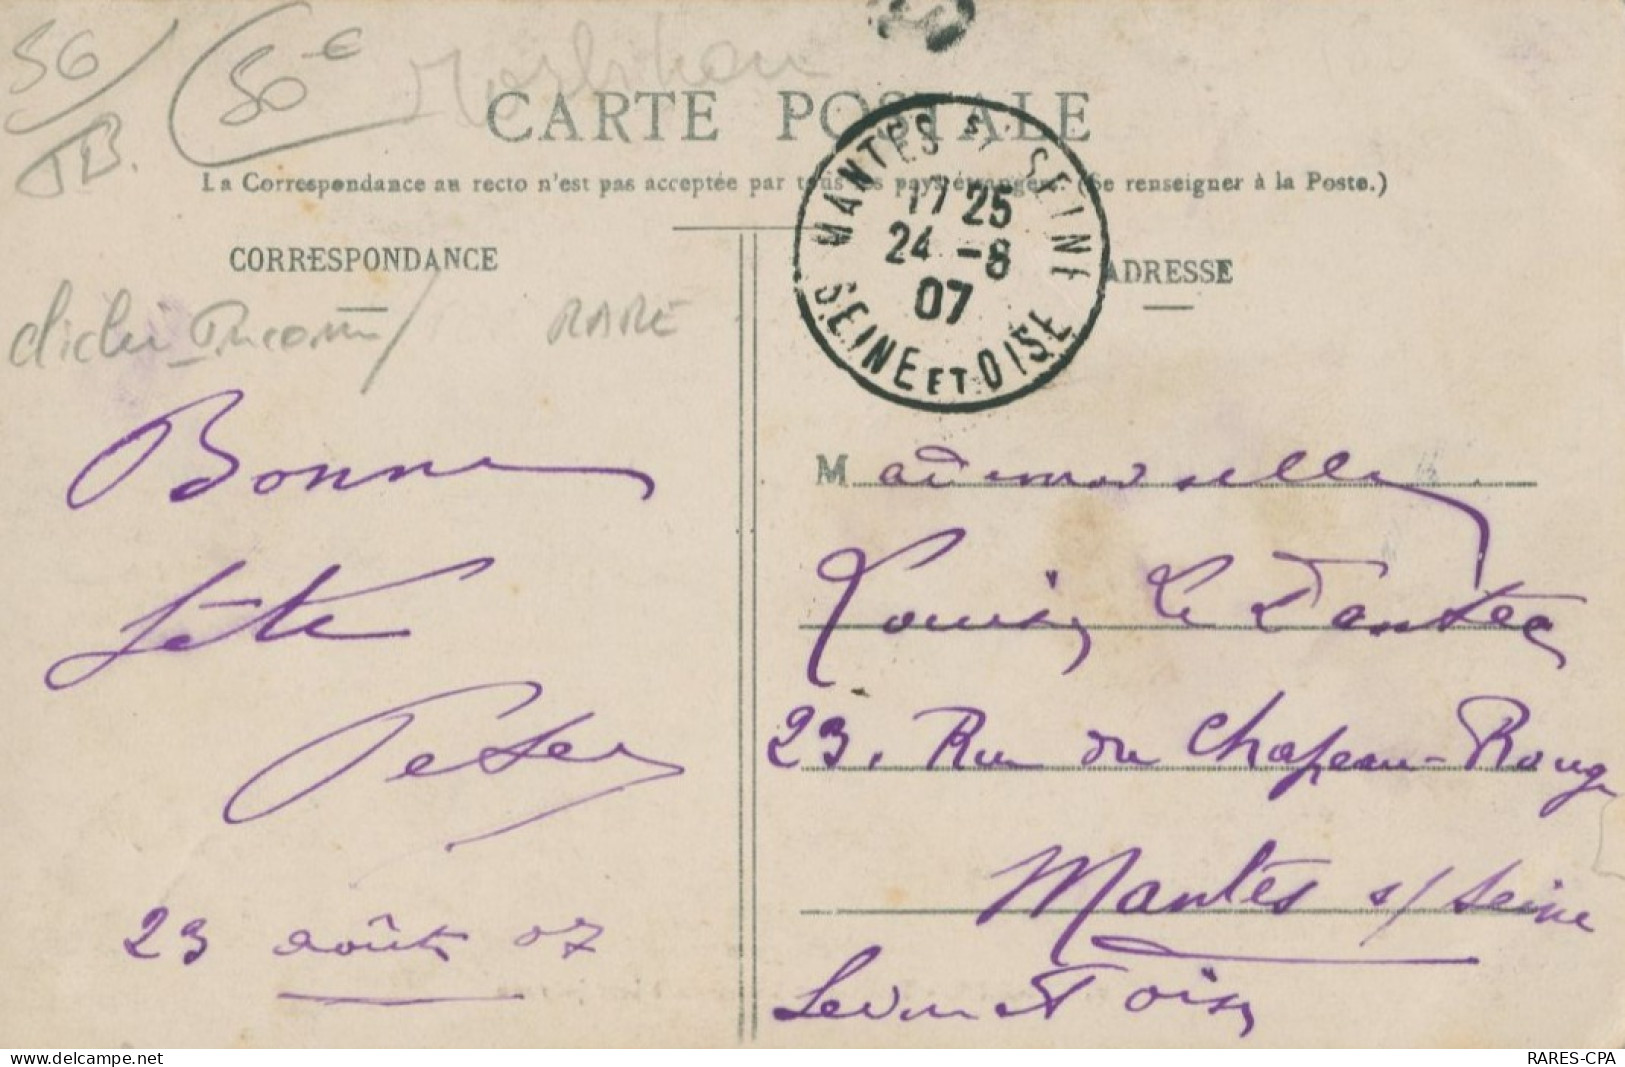 56
TB.
50 €
Morbihan
CARTE POSTALE
La Correspondance au recto n'est pas acceptée par tous les pays étrangers. (Se renseigner à la Poste.)
MANTES S. SEINE
17 25
24 -8
07
SEINE ET OISE
CORRESPONDANCE
cliché
RARE
Bonne
fête
23 août 07
ADRESSE
Mademoiselle
Louise Le Tantec
23, Rue du Chapeau-Rouge
Mantes s/ Seine
Seine et Oise
delcampe.net
RARES-CPA